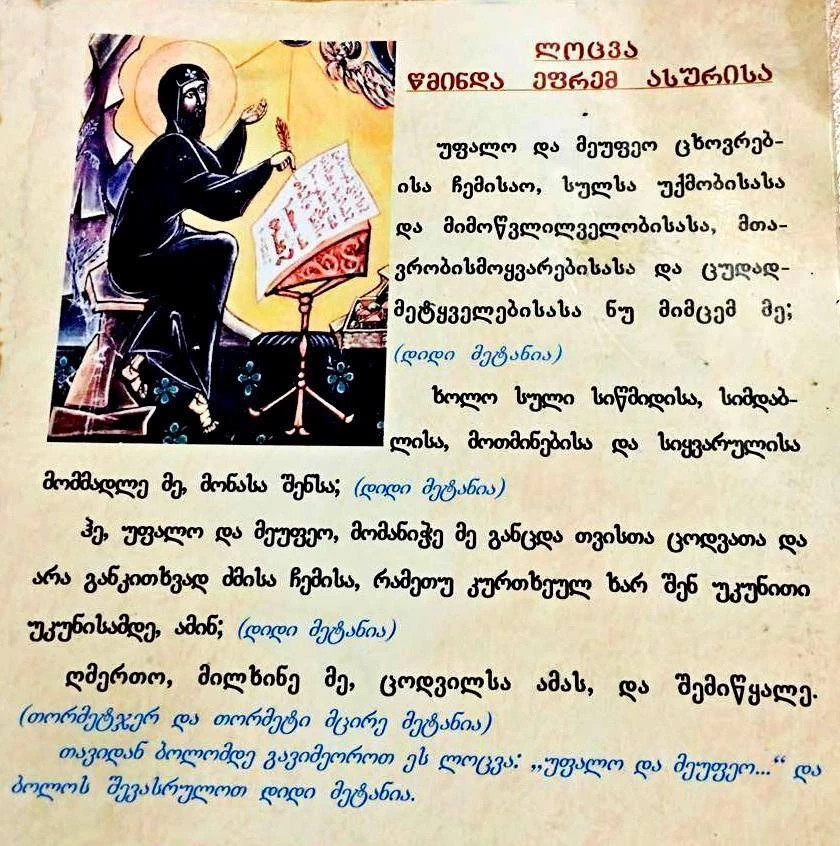 ლოცვა
წმინდა ეფრემ ასურისა
უფალო და მეუფეო ცხოვრებ-
ისა ჩემისაო, სულსა უქმობისასა
და მიმოწვლილველობისასა, მთა-
ვრობისმოყვარებისასა და ცუდად-
მეტყველებისასა ნუ მიმცემ მე;
(დიდი მეტანია)
ხოლო სული სიწმიდისა, სიმდაბ-
ლისა, მოთმინებისა და სიყვარულისა
მომმადლე მე, მონასა შენსა; (დიდი მეტანია)
ჰე, უფალო და მეუფეო, მომანიჭე მე განცდა თვისთა ცოდვათა და
არა განკითხვად ძმისა ჩემისა, რამეთუ კურთხეულ ხარ შენ უკუნითი
უკუნისამდე, ამინ; (დიდი მეტანია)
ღმერთო, მილხინე მე, ცოდვილსა ამას, და შემიწყალე.
(თორმეტჯერ და თორმეტი მცირე მეტანია)
თავიდან ბოლომდე გავიმეოროთ ეს ლოცვა: „უფალო და მეუფეო...“ და
ბოლოს შევასრულოთ დიდი მეტანია.